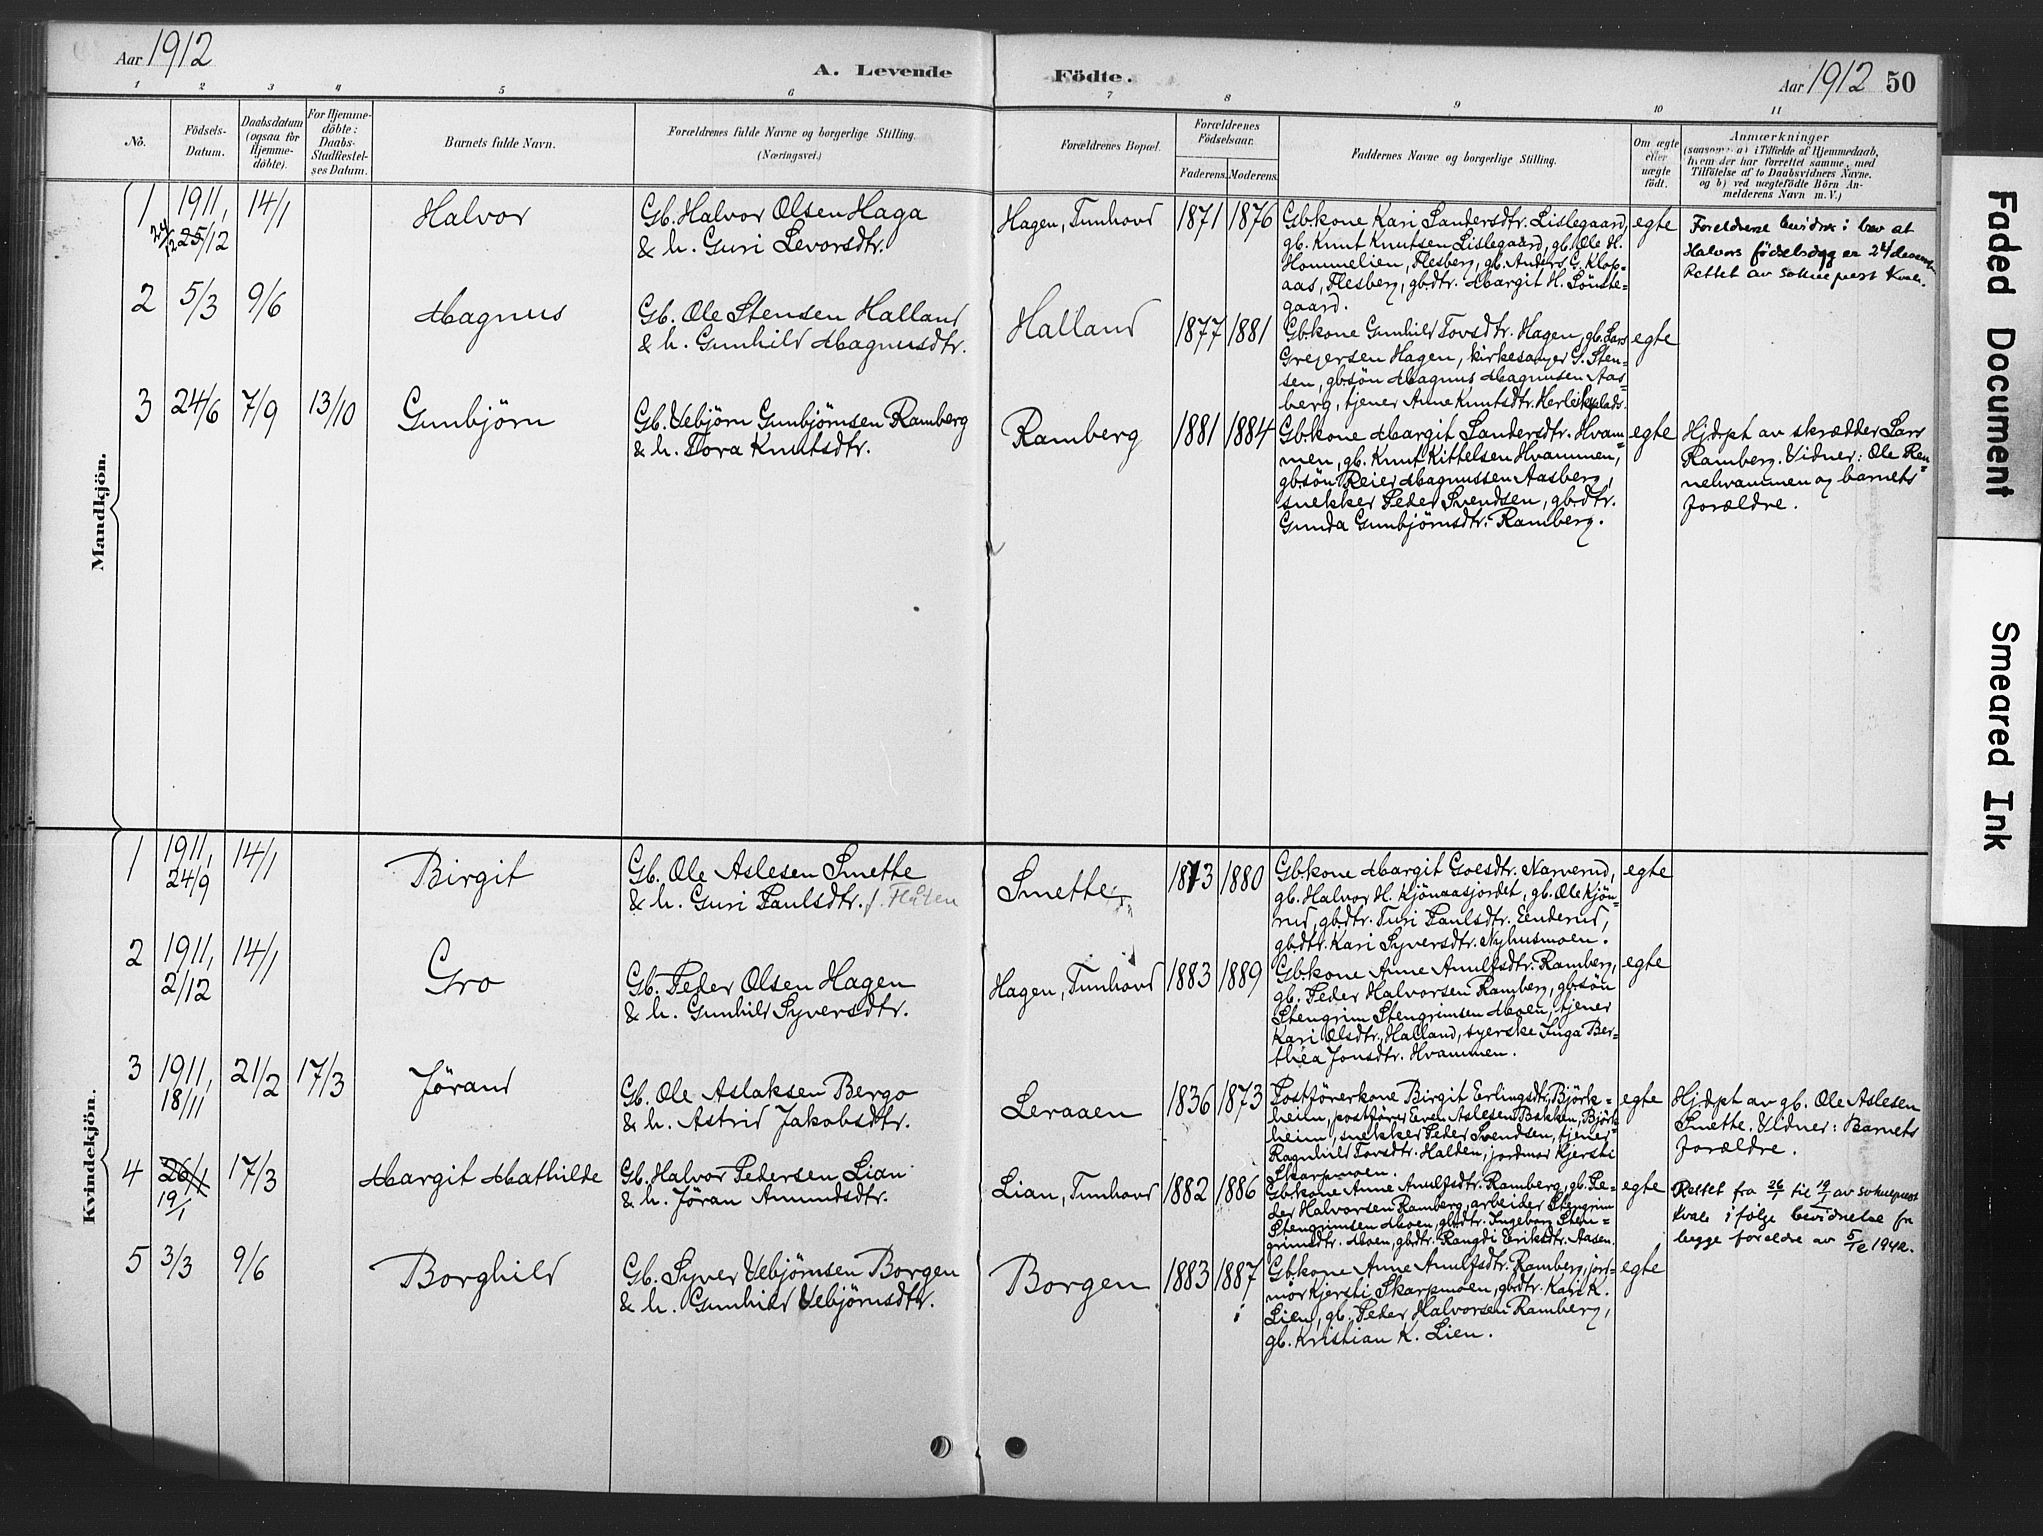 Aar 1912
A. Levende
Födte.
Aar 1912 50
1 2 3 4 5 6 7 8 9 10 11
No.
Födsels-
Datum.
Daabsdatum
(ogsaa for
Hjemme-
döbte).
For Hjemme-
döbte:
Daabs-
Stadfæstel-
ses Datum.
Barnets fulde Navn.
Forældrenes fulde Navne og borgerlige Stilling.
(Næringsvei.)
Forældrenes Bopæl.
Forældrenes
Födselsaar.
Faderens. Moderens.
Faddernes Navne og borgerlige Stilling.
Om ægte
eller
uægte
födt.
Anmærkninger
(saasom: a) i Tilfælde af Hjemmedaab,
hvem der har forrettet samme, med
Tilföielse af to Daabsvidners Navne.
og b) ved uægtefödte Börn An-
melderens Navn m. V.)
Mandkjön.
1
1911,
24/12 25/12
14/1
Halvor
Gb. Halvor Olsen Haga
& h. Guri Levorsdtr.
Hagen, Tunhovd
1871 1876
Gbkone Kari Sandersdtr. Lislegaard,
gb. Knut Knutsen Lislegaard, gb. Ole H.
Hommelien, Flesberg, gb. Anders G. Klop-
aas, Flesberg, gbdtr. Margit H. Sönste-
gaard.
egte
Foreldrene bevidner i brev at
Halvors födselsdag er 24 december
Rettet av sokneprest Kvale.
2
5/3
9/6
Magnus
Gb. Ole Stensen Halland
& h. Gunhild Magnusdtr.
Halland
1877 1881
Gbkone Gunhild Tovsdtr. Hagen, gb. Lars
Grejersen Hagen, kirkesanger G. Sten-
sen, gbsön Magnus Magnusen Aas-
berg, tjener Anne Knutsdtr. Herleiksplads.
egte
3
24/6
7/9
13/10
Gunbjörn
Gb. Vebjörn Gunbjörnsen Ramberg
& h. Tora Knutsdtr.
Ramberg
1881 1884
Gbkone Margit Sandersdtr. Hvam-
men, gb. Knut Kittelsen Hvammen,
gbsön Reier Magnussen Aasberg,
snekker Peder Svendsen, gbdtr.
Gunda Gunbjörnsdtr. Ramberg.
egte
Hjdøpt av skrædder Lars
Ramberg. Vidner: Ole Ren-
nehvammen og barnets
forældre.
Kvindekjön.
1
1911,
24/9
14/1
Birgit
Gb. Ole Aslesen Smette
& h. Guri Paulsdtr. f. Flåten
Smette
1873 1880
Gbkone Margit Goesdtr. Narverud,
gb. Halvor H. Kjönaasjordet, gb. Ole Kjön-
rud, gbdtr. Turi Paulsdtr. Enderud,
gbdtr. Kari Syversdtr. Nyhusmoen.
egte
2
1911,
2/12
14/1
Gro
Gb. Peder Olsen Hagen
& h. Gunhild Syversdtr.
Hagen, Tunhovd
1883 1889
Gbkone Anne Arnulfsdtr. Ramberg,
gb. Peder Halvorsen Ramberg, gbsön
Stengrim Stengrimsen Moen, tjener
Kari Olsdtr. Halland, syerske Inga Ber-
thea Jonsdtr. Hvammen.
egte
3
1911,
18/11
21/2
17/3
Jörand
Gb. Ole Aslaksen Bergo
& h. Astrid Jakobsdtr.
Leraaen
1836 1873
Postförerkone Birgit Erlingsdtr. Björk-
heim, postförer Even Aslesen Bakken, Björk-
heim, snekker Peder Svendsen, tjener
Ragnhild Tovsdtr. Halden, jordmor Kjersti
Skarpmoen.
egte
Hjdøpt av gb. Ole Aslesen
Smette. Vidner: Barnets
forældre.
4
26/1
19/1
17/3
Margit Mathilde
Gb. Halvor Pedersen Lian
& h. Jöran Amundsdtr.
Lian, Tunhovd
1882 1886
Gbkone Anne Arnulfsdtr. Ramberg, gb. Pe-
der Halvorsen Ramberg, arbeider Stengrim
Stengrimsen Moen, gbdtr. Ingeborg Sten-
grimsdtr. Moen, gbdtr. Rangdi Eriksdtr. Aasen.
egte
Rettet fra 26/1 til 19/1 av sokneprest
Kvale ifölge bevidnelse fra
begge foreldre av 5/12 1942.
5
3/3
9/6
Borghild
Gb. Syver Vebjörnsen Borgen
& h. Gunhild Vebjörnsdtr.
Borgen
1883 1887
Gbkone Anne Arnulfsdtr. Ramberg, jord-
mor Kjersti Skarpmoen, gbdtr. Kari K.
Lien, gb. Peder Halvorsen Ramberg,
gb. Kristian K. Lien.
egte
Faded Document
Smeared Ink